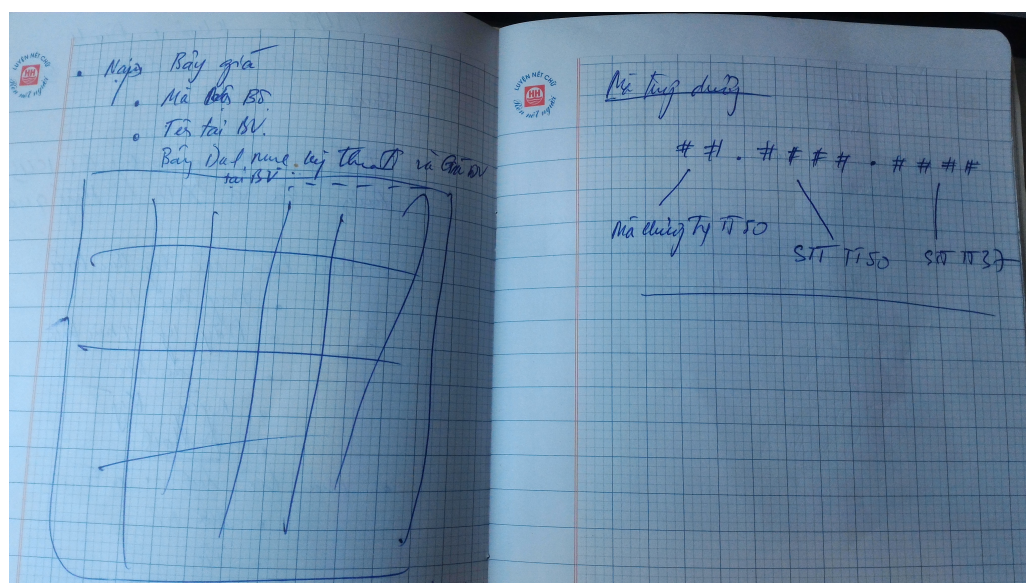 LUYỆN NÉT CHỮ
HH
rèn nết người
Bảy giá
Mã Bộ
Tên tại BV.
Bảy Danh mục kỹ thuật và Giá DV
tại BV
LUYỆN NÉT CHỮ
HH
rèn nết người
Mã tương đương
##.####.####
Mã chương TT 50
STT TT50
STT TT37